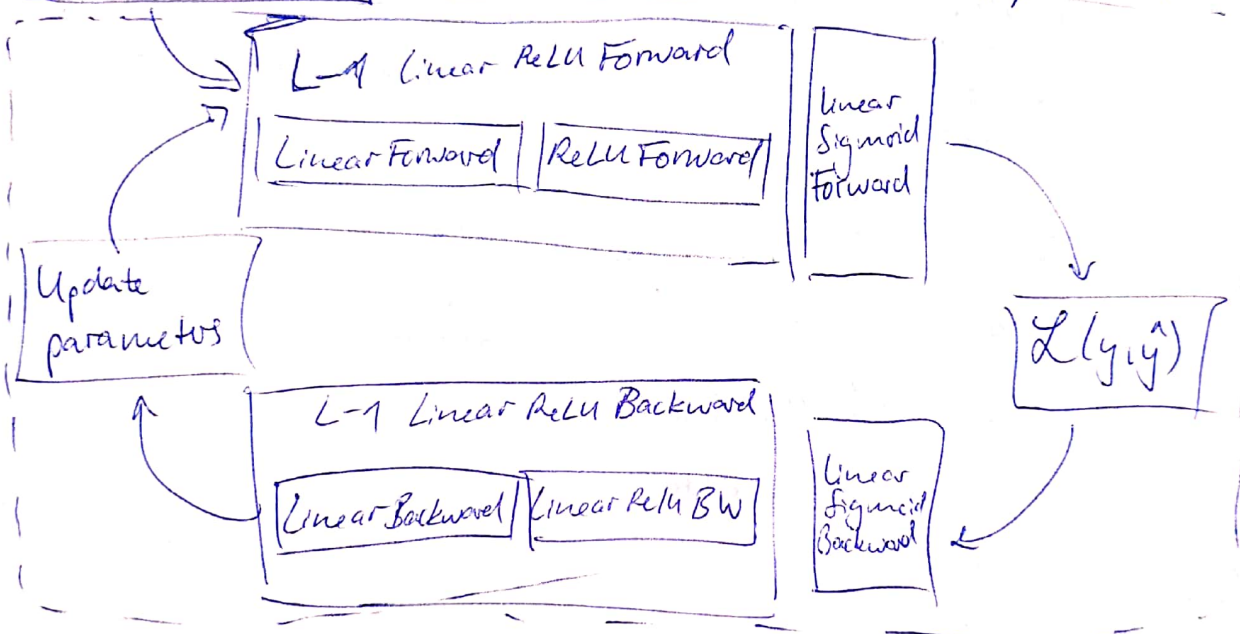 L-1 Linear ReLU Forward
Linear Forward
ReLU Forward
Linear
Sigmoid
Forward
Update
parameters
ℒ(y, ŷ)
L-1 Linear ReLU Backward
Linear Backward
Linear Relu BW
Linear
Sigmoid
Backward